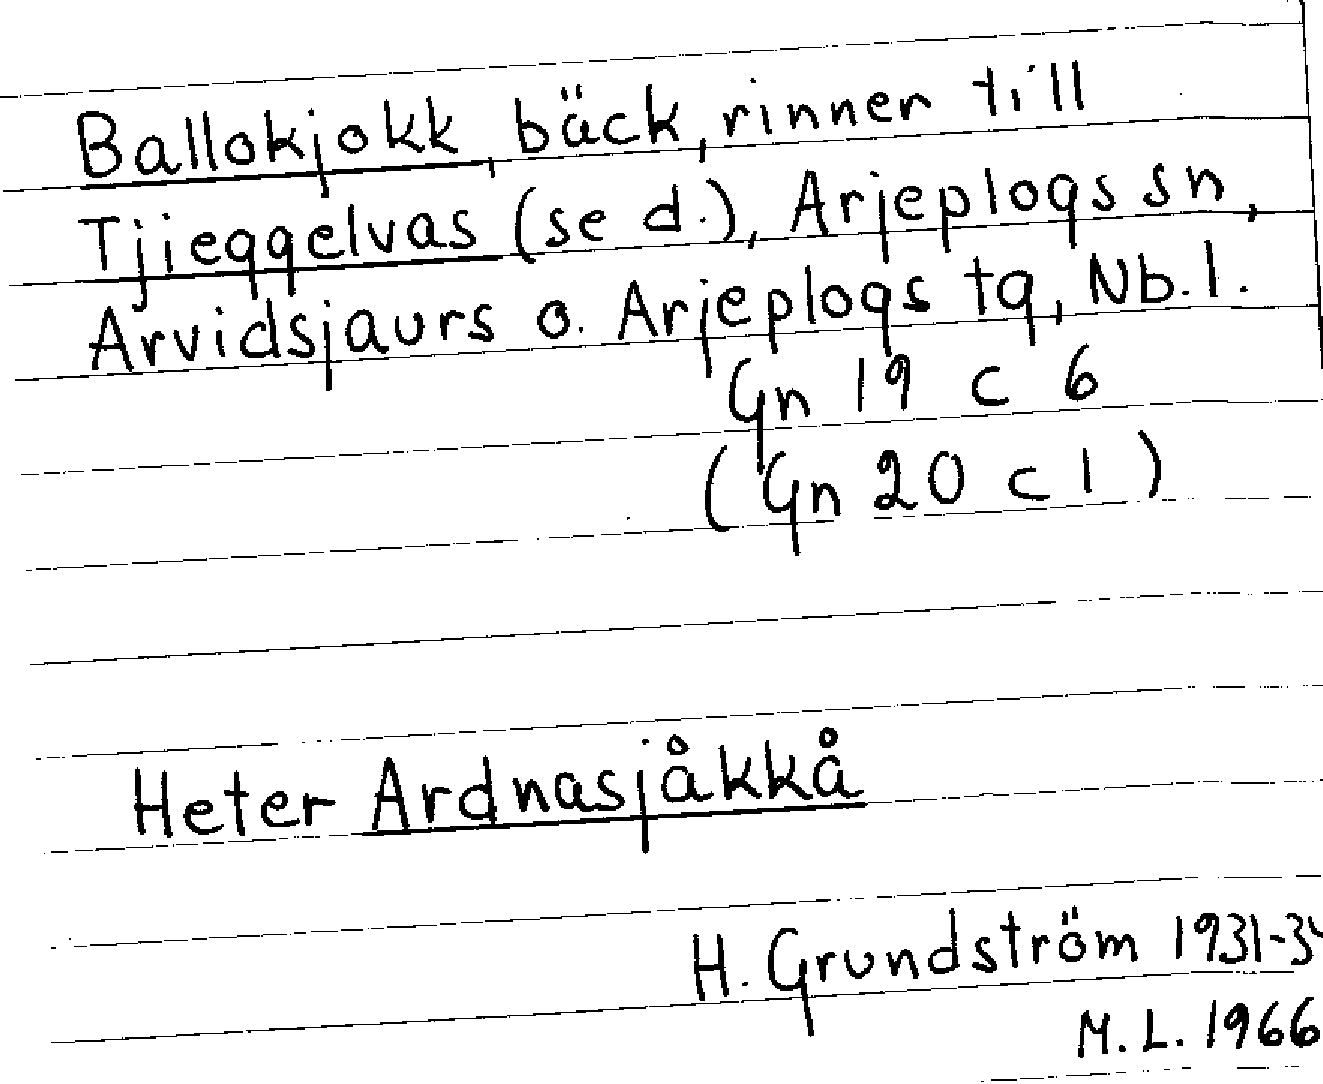 Ballokjokk, bäck, rinner till
Tjieggelvas (se d.), Arjeplogs sn,
Arvidsjaurs o. Arjeplogs tg, Nb. l.
Gn 19 c 6
(Gn 20 c 1)
Heter Ardnasjåkkå
H. Grundström 1931-3
M. L. 1966